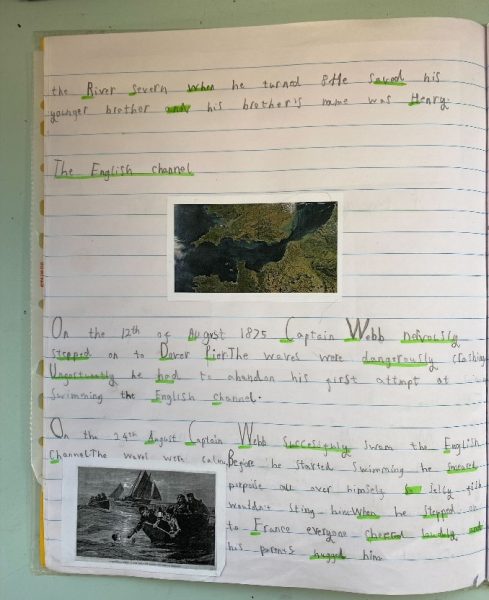 the River severn when he turned 8. He saved his
younger brother and his brother's name was Henry.
The English channel
On the 12th of August 1875 Captain Webb nervously
stepped on to Dover Pier. The waves were dangerously crashing
Unfortuently he had to abandon his first attempt at
swimming the English channel.
On the 24th August Captain Webb succesighly swam the English
Channel. The waves were calm. Before he started swimming he smeared
porpoise over himself so Jelly fish
wouldn't sting him. When he stepped on
to France everyone cheered loudly and
his parents hugged him